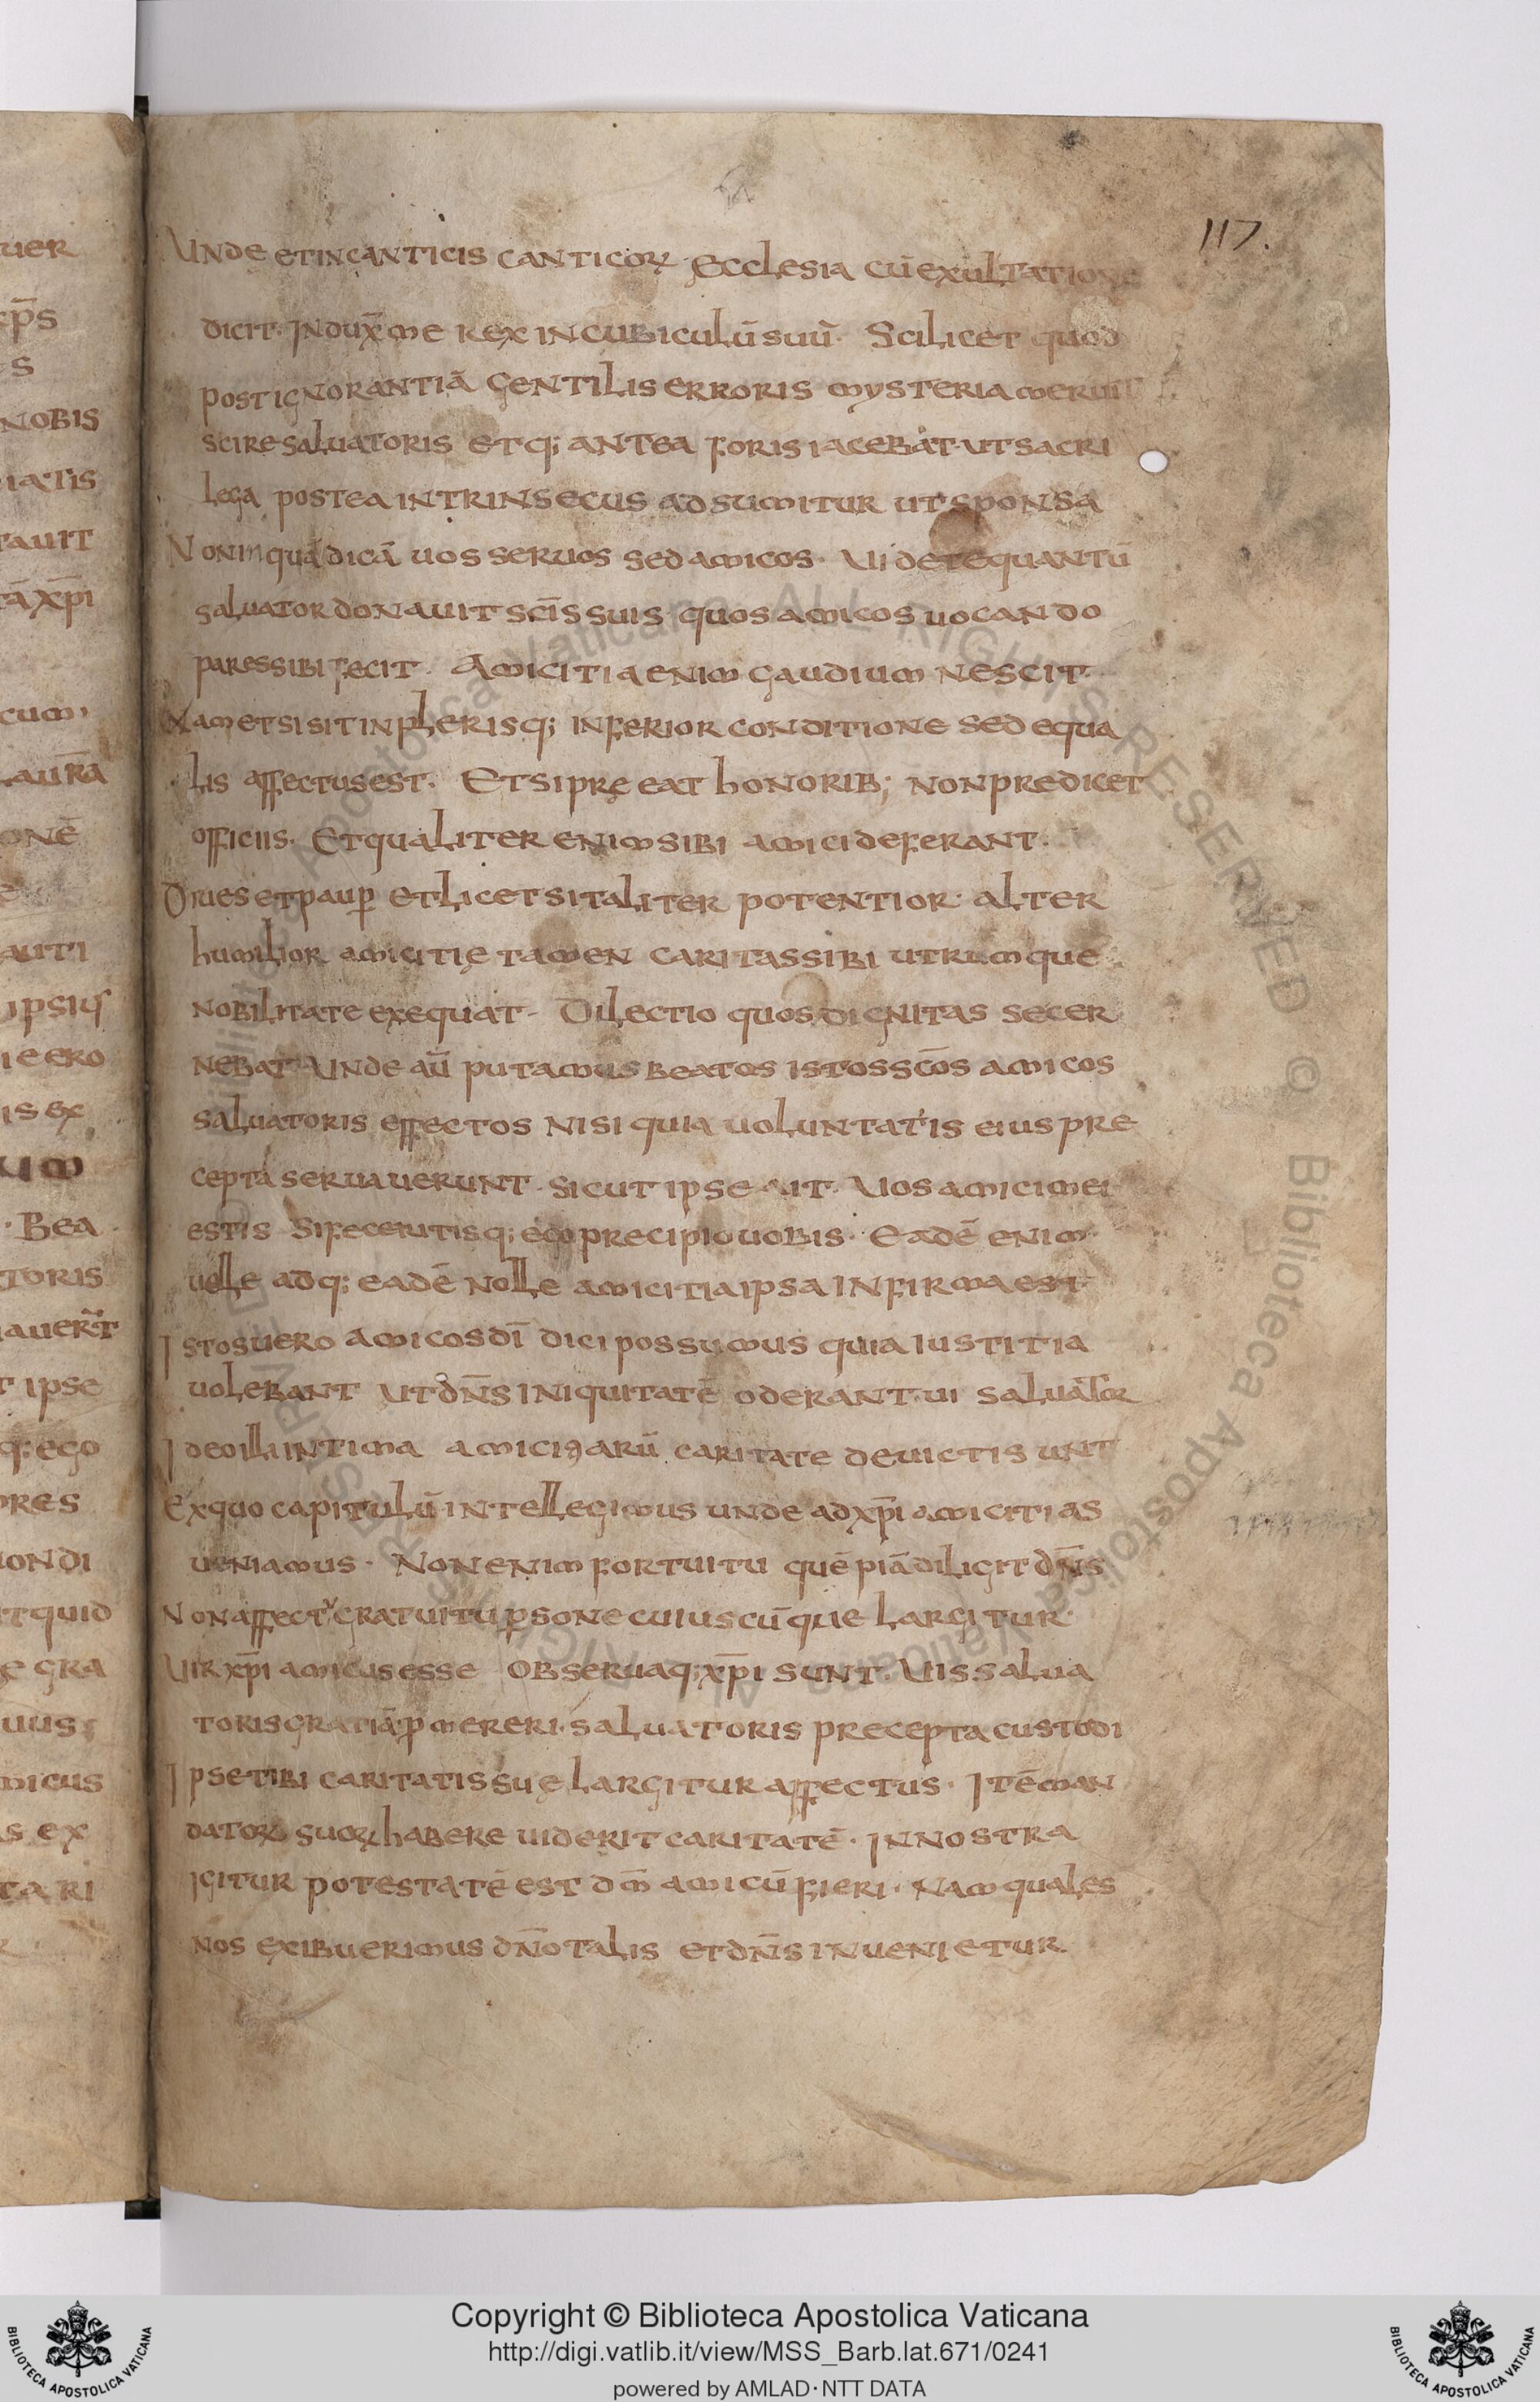 117.
Unde et in canticis canticoꝝ ecclesia cū exultatione
dicit · Induxᷓ me rex in cubiculū suū · Scilicet quod
post ignorantiā gentilis erroris mysteria meruit
scire saluatoris et q; antea foris iacebat · ut sacri
lega postea intrinsecus adsumitur ut sponsa
Non inquā dicā uos seruos sed amicos · Uidete quantū
saluator donauit scīs suis · quos amicos uocando
pares sibi fecit · Amicitia enim gaudium nescit
Nam etsi sit in plerisq; inferior conditione sed equa
lis affectus est · Etsi pręeat honorib; non predicet
officiis · Et qualiter enim sibi amici deferant ·
Diues et paup̲ et licet sit aliter potentior · alter
humilior amicitię tamen caritas sibi utrumque
nobilitate exequat · Dilectio quos dignitas secer
nebat · Unde aū putamus beatos istos scōs amicos
saluatoris effectos nisi quia uoluntatis eius pre
cepta seruauerunt · sicut ipse ait · Uos amici mei
estis si feceritis q; ego precipio uobis · Eadē enim
uelle adq; eadē nolle amicitia ipsa infirma est
Istos uero amicos dī dici possumus quia iustitia
uolebant ut dn̄s iniquitatē oderant · ui saluator
Ideo illi intima amicigarū caritate deuicti sunt
Ex quo capitulū intellegimus unde ad xp̄i amicitias
ueniamus · Non enim fortuitu quē piā diligit dn̄s
Non affectꝰ gratuitu p̲sone cuiuscūque largitur ·
Uir xp̄i amicus esse obserua q; xp̄i sunt · Uis salua
toris gratiā p̲mereri · saluatoris precepta custodi
Ipse tibi caritatis suę largitur affectus · Itē man
datoꝝ suoꝝ habere uiderit caritatē · In nostra
igitur potestatē est dm̄ amicū fieri · Nam quales
nos exibuerimus dn̄o talis et dn̄s inuenietur
Copyright © Biblioteca Apostolica Vaticana
http://digi.vatlib.it/view/MSS_Barb.lat.671/0241
powered by AMLAD·NTT DATA
BIBLIOTECA APOSTOLICA VATICANA
BIBLIOTECA APOSTOLICA VATICANA